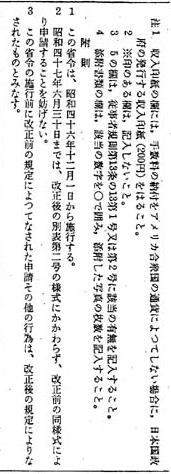 注1 収入印紙の欄には、手数料の納付をアメリカ合衆国の通貨によつてしない場合に、日本国政
府の発行する収入印紙(200円)をはること。
2 ※印のある欄は、記入しないこと。
3 5の欄は、従事者規則第13条の13第1号又は第2号に該当の有無を記入すること。
4 添附書類の欄は、該当の数字を○で囲み、添附した写真の枚数を記入すること。
附 則
1 この省令は、昭和四十六年十二月一日から施行する。
2 昭和四十七年六月三十日までは、改正後の別表第二号の様式にかかわらず、改正前の同様式によ
り申請することを妨げない。
3 この省令の施行前に改正前の規定によつてなされた申請その他の行為は、改正後の規定によりな
されたものとみなす。